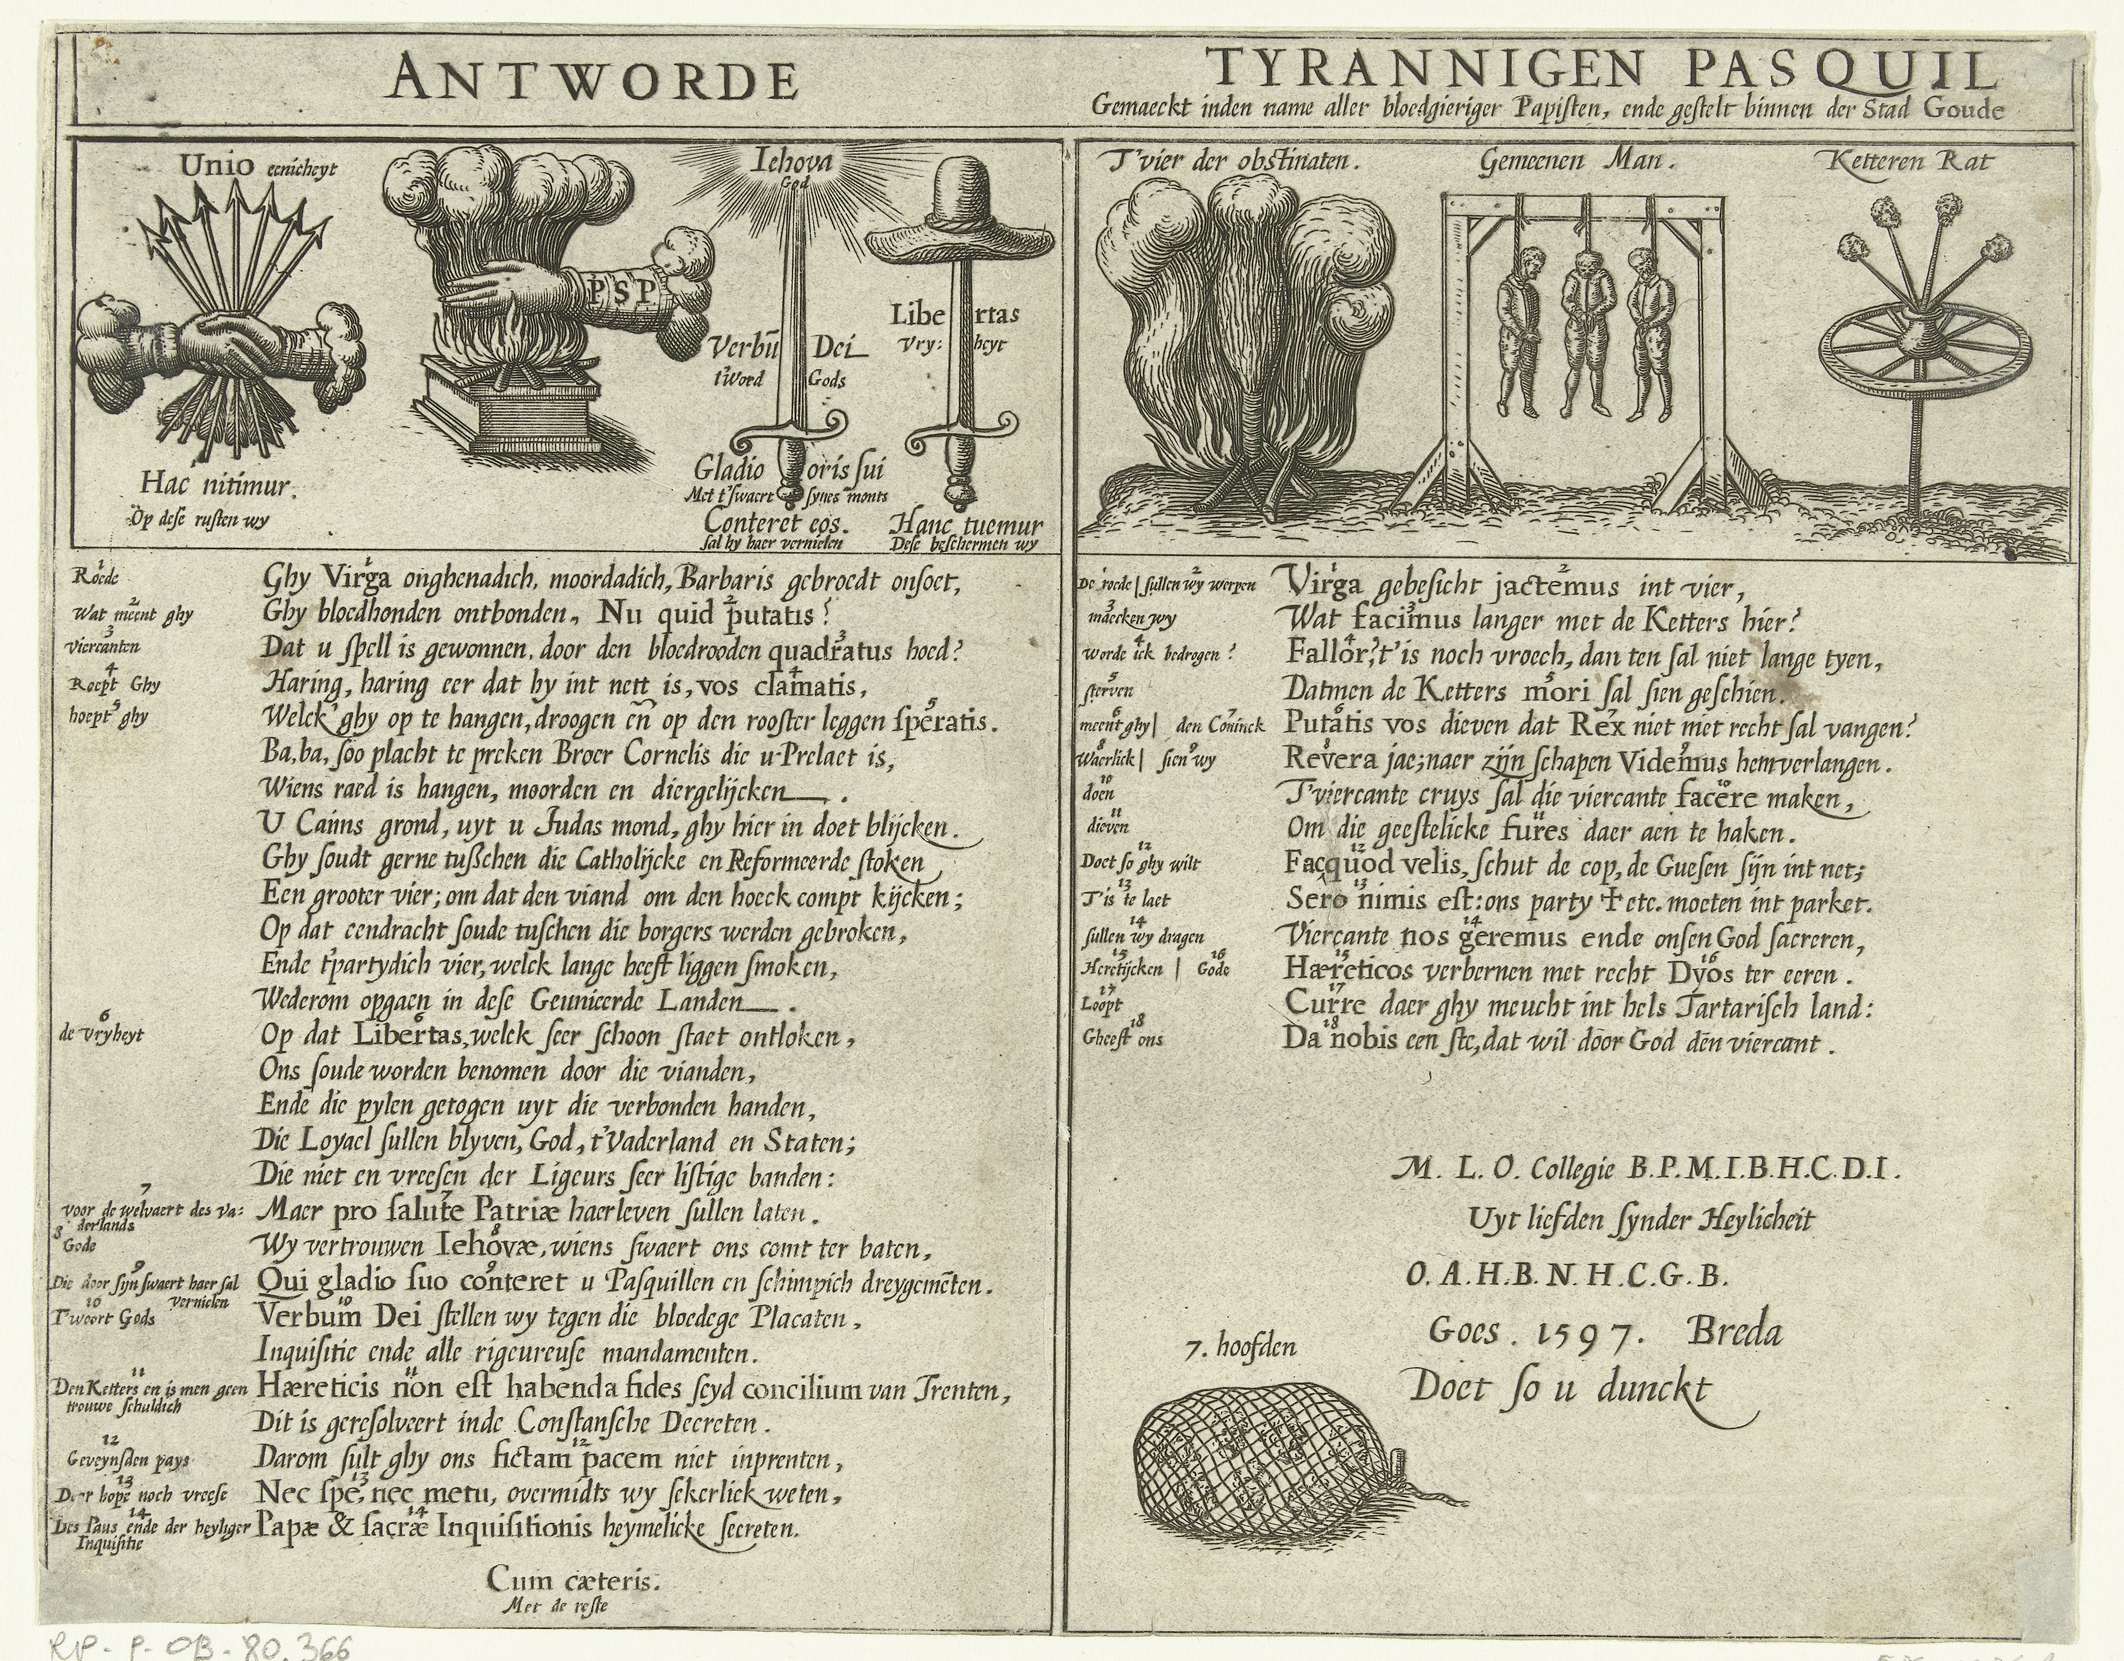 ANTWORDE
Unio eenicheyt
Hac nitimur.
Op dese rusten wy
PSP
Iehova
God
Verbū Dei
t'Word Gods
Gladio oris sui
Met t'swaert synes monts
Conteret eos.
sal hy haer vernielen
Libertas
Vry: heyt
Hanc tuemur
Dese beschermen wy
1 Roede
Ghy Virga onghenadich, moordadich, Barbaris gebroedt onsoet,
2 Wat meent ghy
Ghy bloedhonden ontbonden, Nu quid putatis?
3 viercanten
Dat u spell is gewonnen, door den bloedrooden quadratus hoed?
4 Roept Ghy
Haring, haring eer dat hy int nett is, vos clamatis,
5 hoept ghy
Welck ghy op te hangen, droogen eñ op den rooster leggen speratis.
Ba, ba, soo placht te preken Broer Cornelis die u Prelaet is,
Wiens raed is hangen, moorden en diergelijcken.
U Caims grond, uyt u Judas mond, ghy hier in doet blijcken.
Ghy soudt gerne tusschen die Catholijcke en Reformeerde stoken
Een grooter vier; om dat den viand om den hoeck compt kijcken;
Op dat eendracht soude tuschen die borgers werden gebroken,
Ende t'partydich vier, welck lange heeft liggen smoken,
Wederom opgaen in dese Geunieerde Landen.
6 de vryheyt
Op dat Libertas, welck seer schoon staet ontloken,
Ons soude worden benomen door die vianden,
Ende die pylen getogen uyt die verbonden handen,
Die Loyael sullen blyven, God, t'Vaderland en Staten;
Die niet en vreesen der Ligeurs seer listige banden:
7 voor de welvaert des va=
derlands
Maer pro salute Patriæ haer leven sullen laten.
8 Gode
Wy vertrouwen Iehovæ, wiens swaert ons comt ter baten,
9 Die door sijn swaert haer sal
vernielen
Qui gladio suo conteret u Pasquillen en schimpich dreygemēten.
10 T'woort Gods
Verbum Dei stellen wy tegen die bloedege Placaten,
Inquisitie ende alle rigeureuse mandamenten.
11 Den Ketters en is men geen
trouwe schuldich
Hæreticis non est habenda fides seyd concilium van Trenten,
Dit is geresolveert inde Constansche Decreten.
12 Geveynsden pays
Darom sult ghy ons fictam pacem niet inprenten,
13 Door hope noch vreese
Nec spe, nec metu, overmidts wy sekerlick weten,
14 Des Paus ende der heyliger
Inquisitie
Papæ & sacræ Inquisitionis heymelicke secreten.
Cum cæteris.
Met de reste
TYRANNIGEN PASQUIL
Gemaeckt inden name aller bloedgieriger Papisten, ende gestelt binnen der Stad Goude
T'vier der obstinaten.
Gemeenen Man.
Ketteren Rat
1 De roede | 2 sullen wy werpen
Virga gebesicht jactemus int vier,
3 maecken wy
Wat facimus langer met de Ketters hier?
4 worde ick bedrogen?
Fallor? t'is noch vroech, dan ten sal niet lange tyen,
5 sterven
Datmen de Ketters mori sal sien geschien.
6 meent ghy | 7 den Coninck
Putatis vos dieven dat Rex niet met recht sal vangen?
8 Waerlick | 9 sien wy
Revera jae; naer zijn schapen Videmus hem verlangen.
10 doen
T'viercante cruys sal die viercante facere maken,
11 dieven
Om die geestelicke fures daer aen te haken.
12 Doet so ghy wilt
Fac quod velis, schut de cop, de Guesen sijn int net;
13 T'is te laet
Sero nimis est: ons party + etc. moeten int parket.
14 sullen wy dragen
Viercante nos geremus ende onsen God sacreren,
15 Heretijcken | 16 Gode
Hæreticos verbernen met recht Dyos ter eeren.
17 Loopt
Curre daer ghy meucht int hels Tartarisch land:
18 Gheeft ons
Da nobis een ste, dat wil door God den viercant.
M. L. O. Collegie B.P.M.I.B.H.C.D.I.
Uyt liefden synder Heylicheit
O.A.H.B.N.H.C.G.B.
Goes. 1597. Breda
Doet so u dunckt
7. hoofden
RP-P-OB-80.366